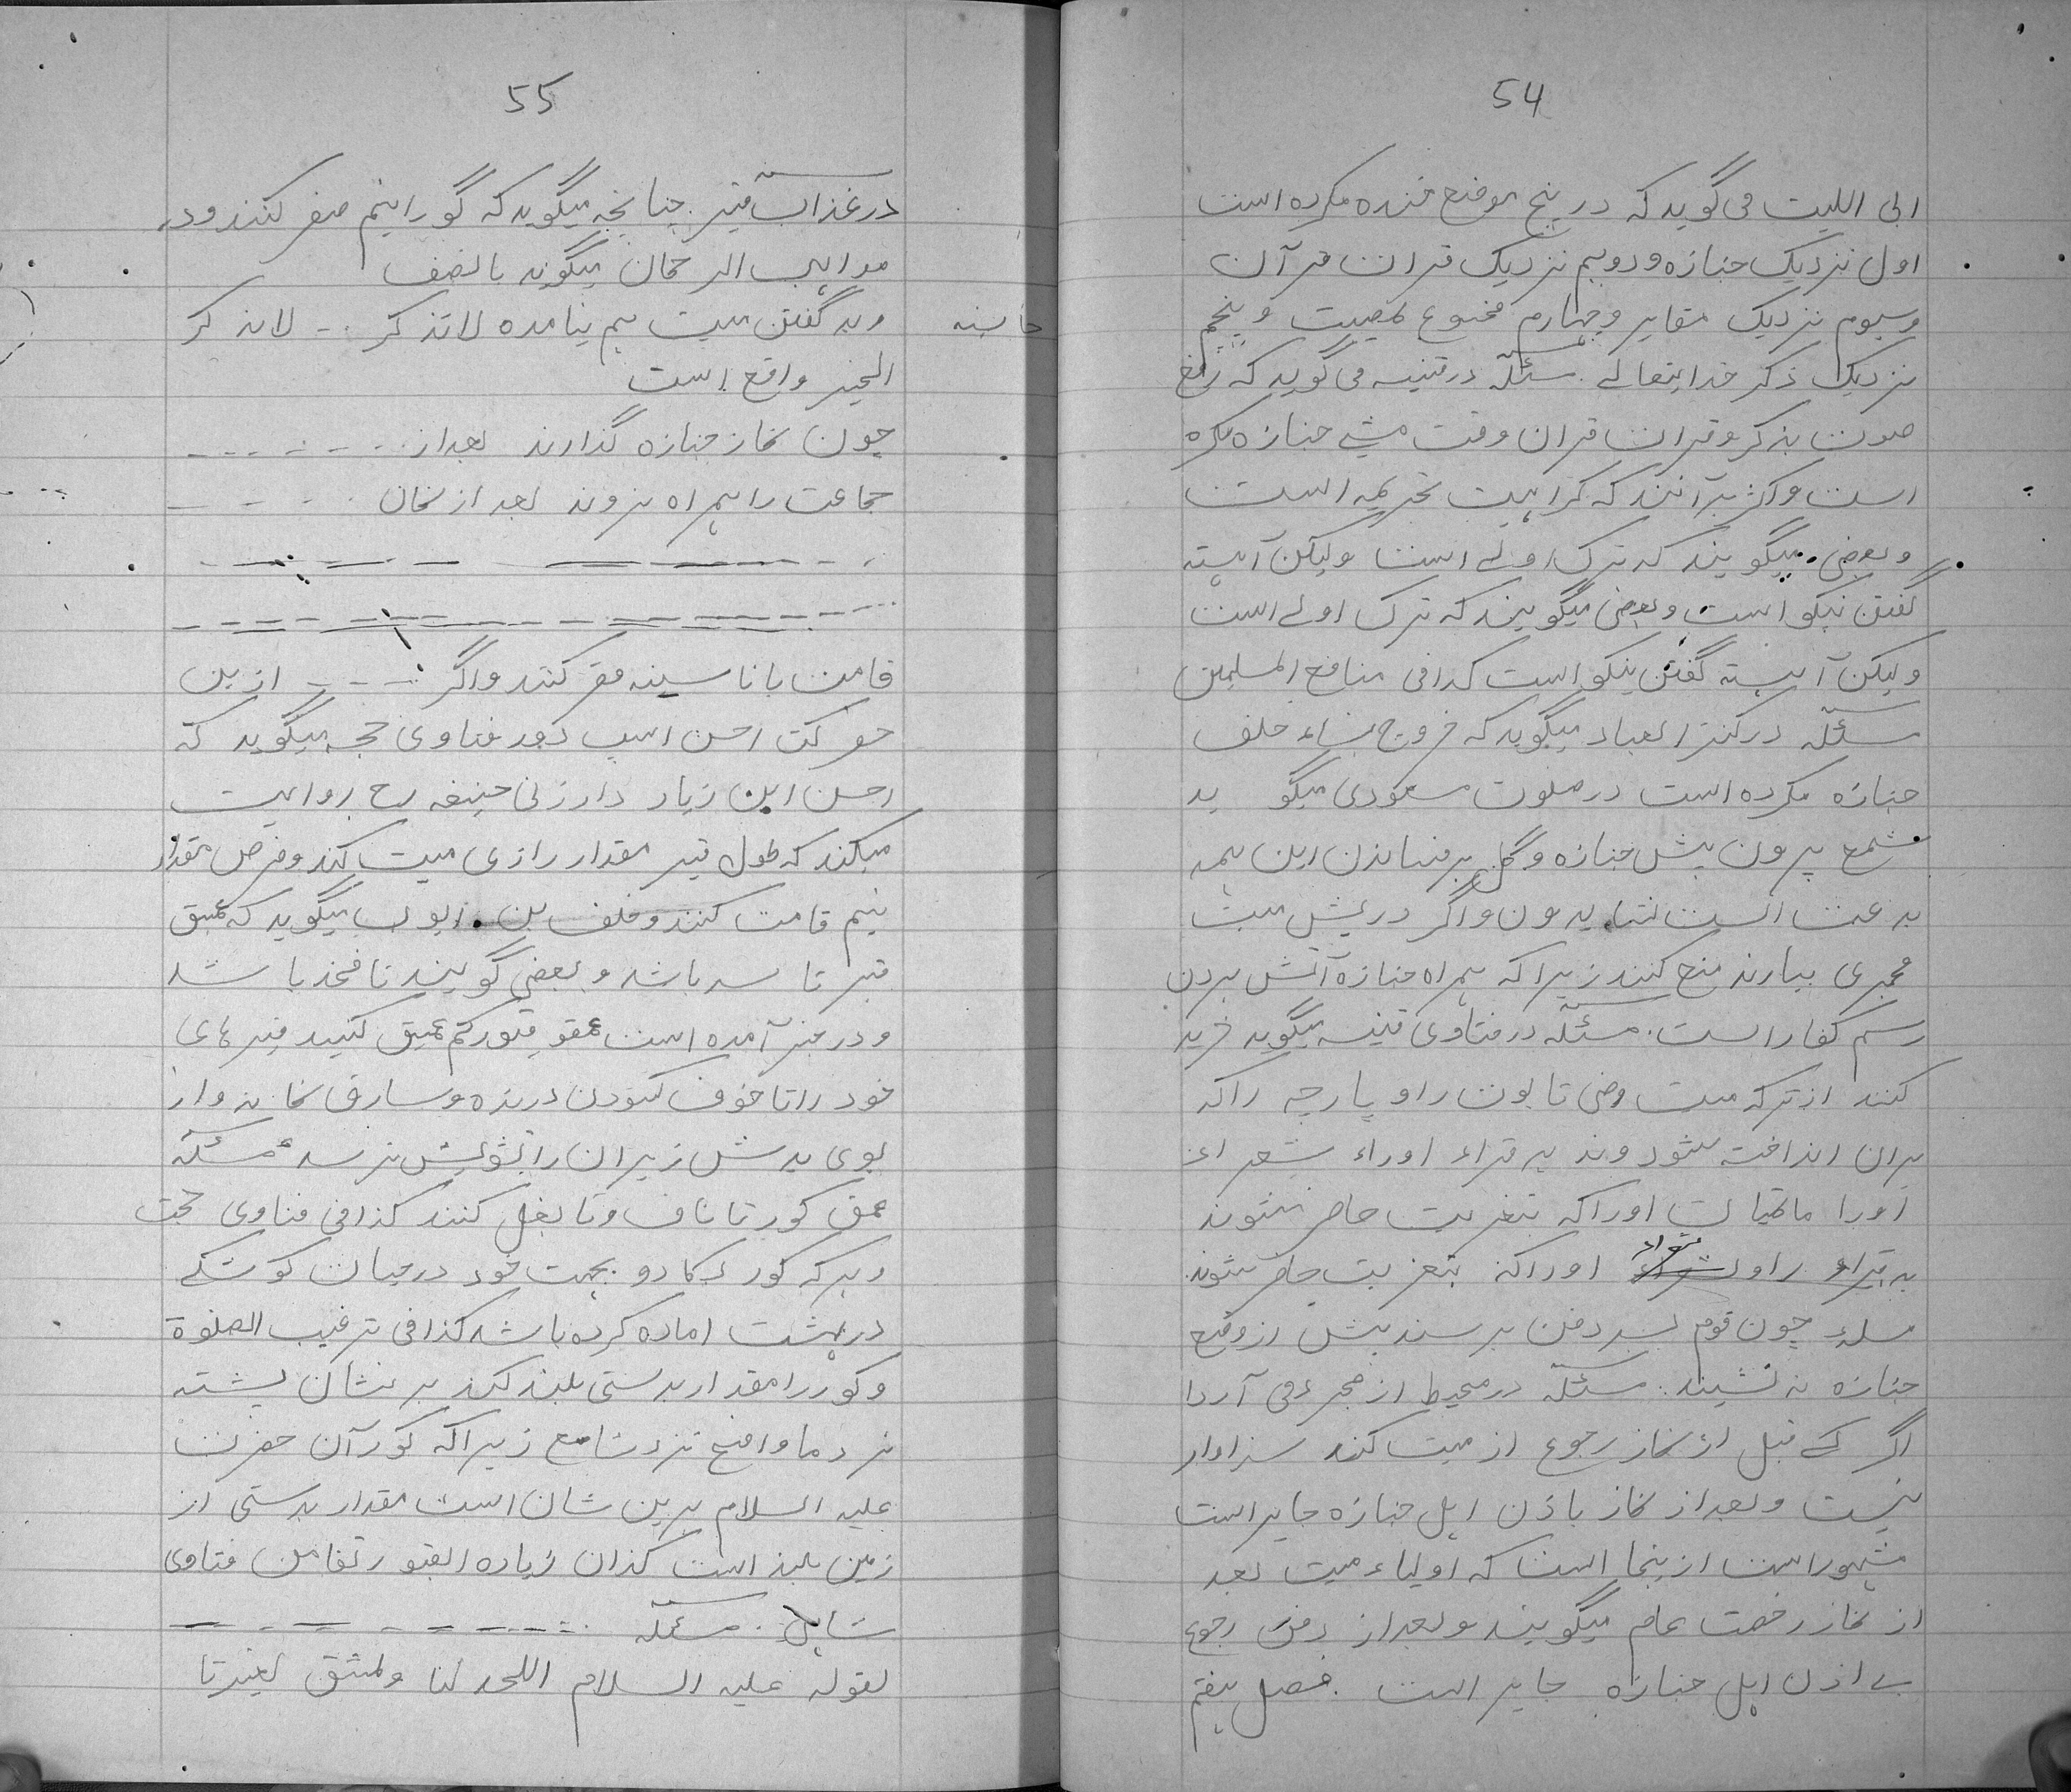 54
ابی اللیث می گوید که در پنج موضع خنده مکروه است
اول نزدیک جنازه و دویم نزدیک قران قرآن
وسیوم نزدیک مقابر وچهارم مصیبت و پنجم
نزدیک ذکر خدایتعالے . مسئله در قنیه می گوید که رفع
صوت بذکر و قران قران وقت مشے جنازه مکره
است و اکثر برآنند که کراہیت تحریمہ است
وبعضی میگویند که ترک اولے است ولیکن آہستہ
گفتن نیکو است وبعضی میگویند که ترک اولے است
ولیکن آہستہ گفتن نیکو است کذافی منافع المسلمین
مسئله در کنز العباد میگوید که خروج نساء خلف
جنازه مکرده است در صلوت مسعودی میگو ید
شمع برون پیش جنازه و گل برفشاندن این ہمہ
بدعت است نشاید و اگر در پیش میت
مجمری بیارند منع کنند زیرا که ہمراه جنازه آتش بردن
رسم کفار است . مسئله در فتاوی قنیه میگوید خرید
کنند از ترکه میت تابوت را و پارچہ راکه
بران انداخته میشود
اورا اوراکه بتعزیت حاضر میشوند
را و اوراکه بتعزیت حاضر میشوند
مسله چون قوم بسر دفن برسند پیش از وضع
جنازه نه نشیند . مسئله در محیط از می آرد
اگر کے قبل از نماز رجوع از میت کند سزاوار
نیست وبعد از نماز باذن اہل جنازه جایز است
مشہور است ازینجا است که اولیاء میت بعد
از نماز رخصت عام میگویند وبعد از دفن رجوع
بے اذن اہل جنازه جایز است . فصل ہفتم
55
در عذاب قبر . چنانچہ میگوید که گور اینم صفر کنند ودر
مواہب الرحمان میگوید بالصف
وبد گفتن میت ہم نیامده لاتذکر -- لاتذکر
الخیر واقع است
چون نماز جنازه گذارند بعد از
جماعت را ہمراه بروند بعد از
قامت یا تا سینہ کنند واگر --- ازین
کند احسن است ودر فتاوی حجہ میگوید که
احسن ابن زیاد حنیفہ رح روایت
میکند که طول قبر مقدار رازی میت کند وعرض مقدار
نیم قامت کنند میگوید که عمیق
قبر تا سر باشد وبعضی گویند تا فخذ باشد
ودر خبر آمده است عمقو قبورکم عمیق کنید قبرهای
خود را تا خوف درنده و سارق نماند واز
بوی بدش را تشویش نرسد مسئله
عمق گور تا ناف وتا بغل کنند کذافی فتاوی حجت
وہر که گور بجہت خود درمیان کوشکے
در بہشت اماده کرده باشد کذافی ترغیب الصلوة
وگور را مقدار بدستی بلند کند بر نشان پشته
نزد ما زیرا که گور آن حضرت
علیہ السلام بدین شان است مقدار بدستی از
زمین بلند است فتاوی
مسئله
لقولہ علیہ السلام اللحد لنا والشق لغیرنا